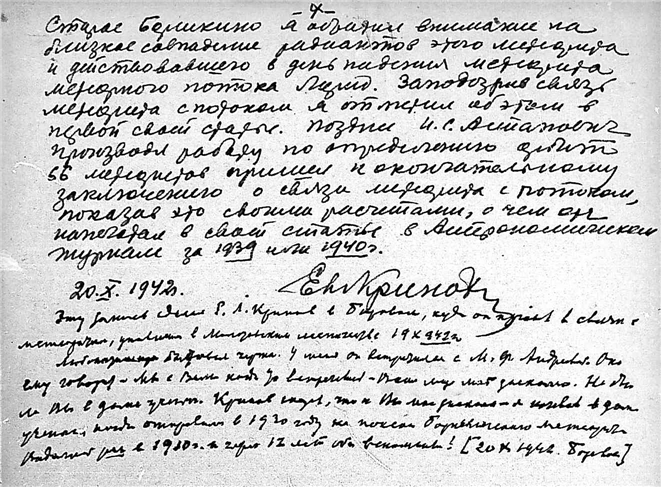 Старое Борискино я обратил внимание на
близкое совпадение радиантов этого метеорита
и действовавшего в день падения метеорита
метеорного потока Лирид. Заподозрив связь
метеорита с потоком я отметил об этом в
первой своей статье. Позднее И.С. Астапович
производя работу по определению орбит
66 метеоритов пришел к окончательному
заключению о связи метеорита с потоком,
показав это своими расчетами, о чем он
напечатал в своей статье в Астрономическом
журнале за 1939 или 1940 г.
20.X.1942г. Евг Кринов
Эту запись делал Е. Л. Кринов в Боровом, куда он приехал в связи с
метеоритом, упавшим в
бытовая черта. У меня он встретился с М. Ф. Андреевой. Она
ему говорит - мы с Вами когда-то встречались - Ваше лицо мне знакомо. Не были
ли Вы в доме ученых. Кринов говорит, что и Вы мне знакомы - я в доме
ученых, когда отправлялся в 1930 году на поиски метеорита
раз в 1930 г. и через 12 лет оба вспомнили! [20 X 1942. Боровое]